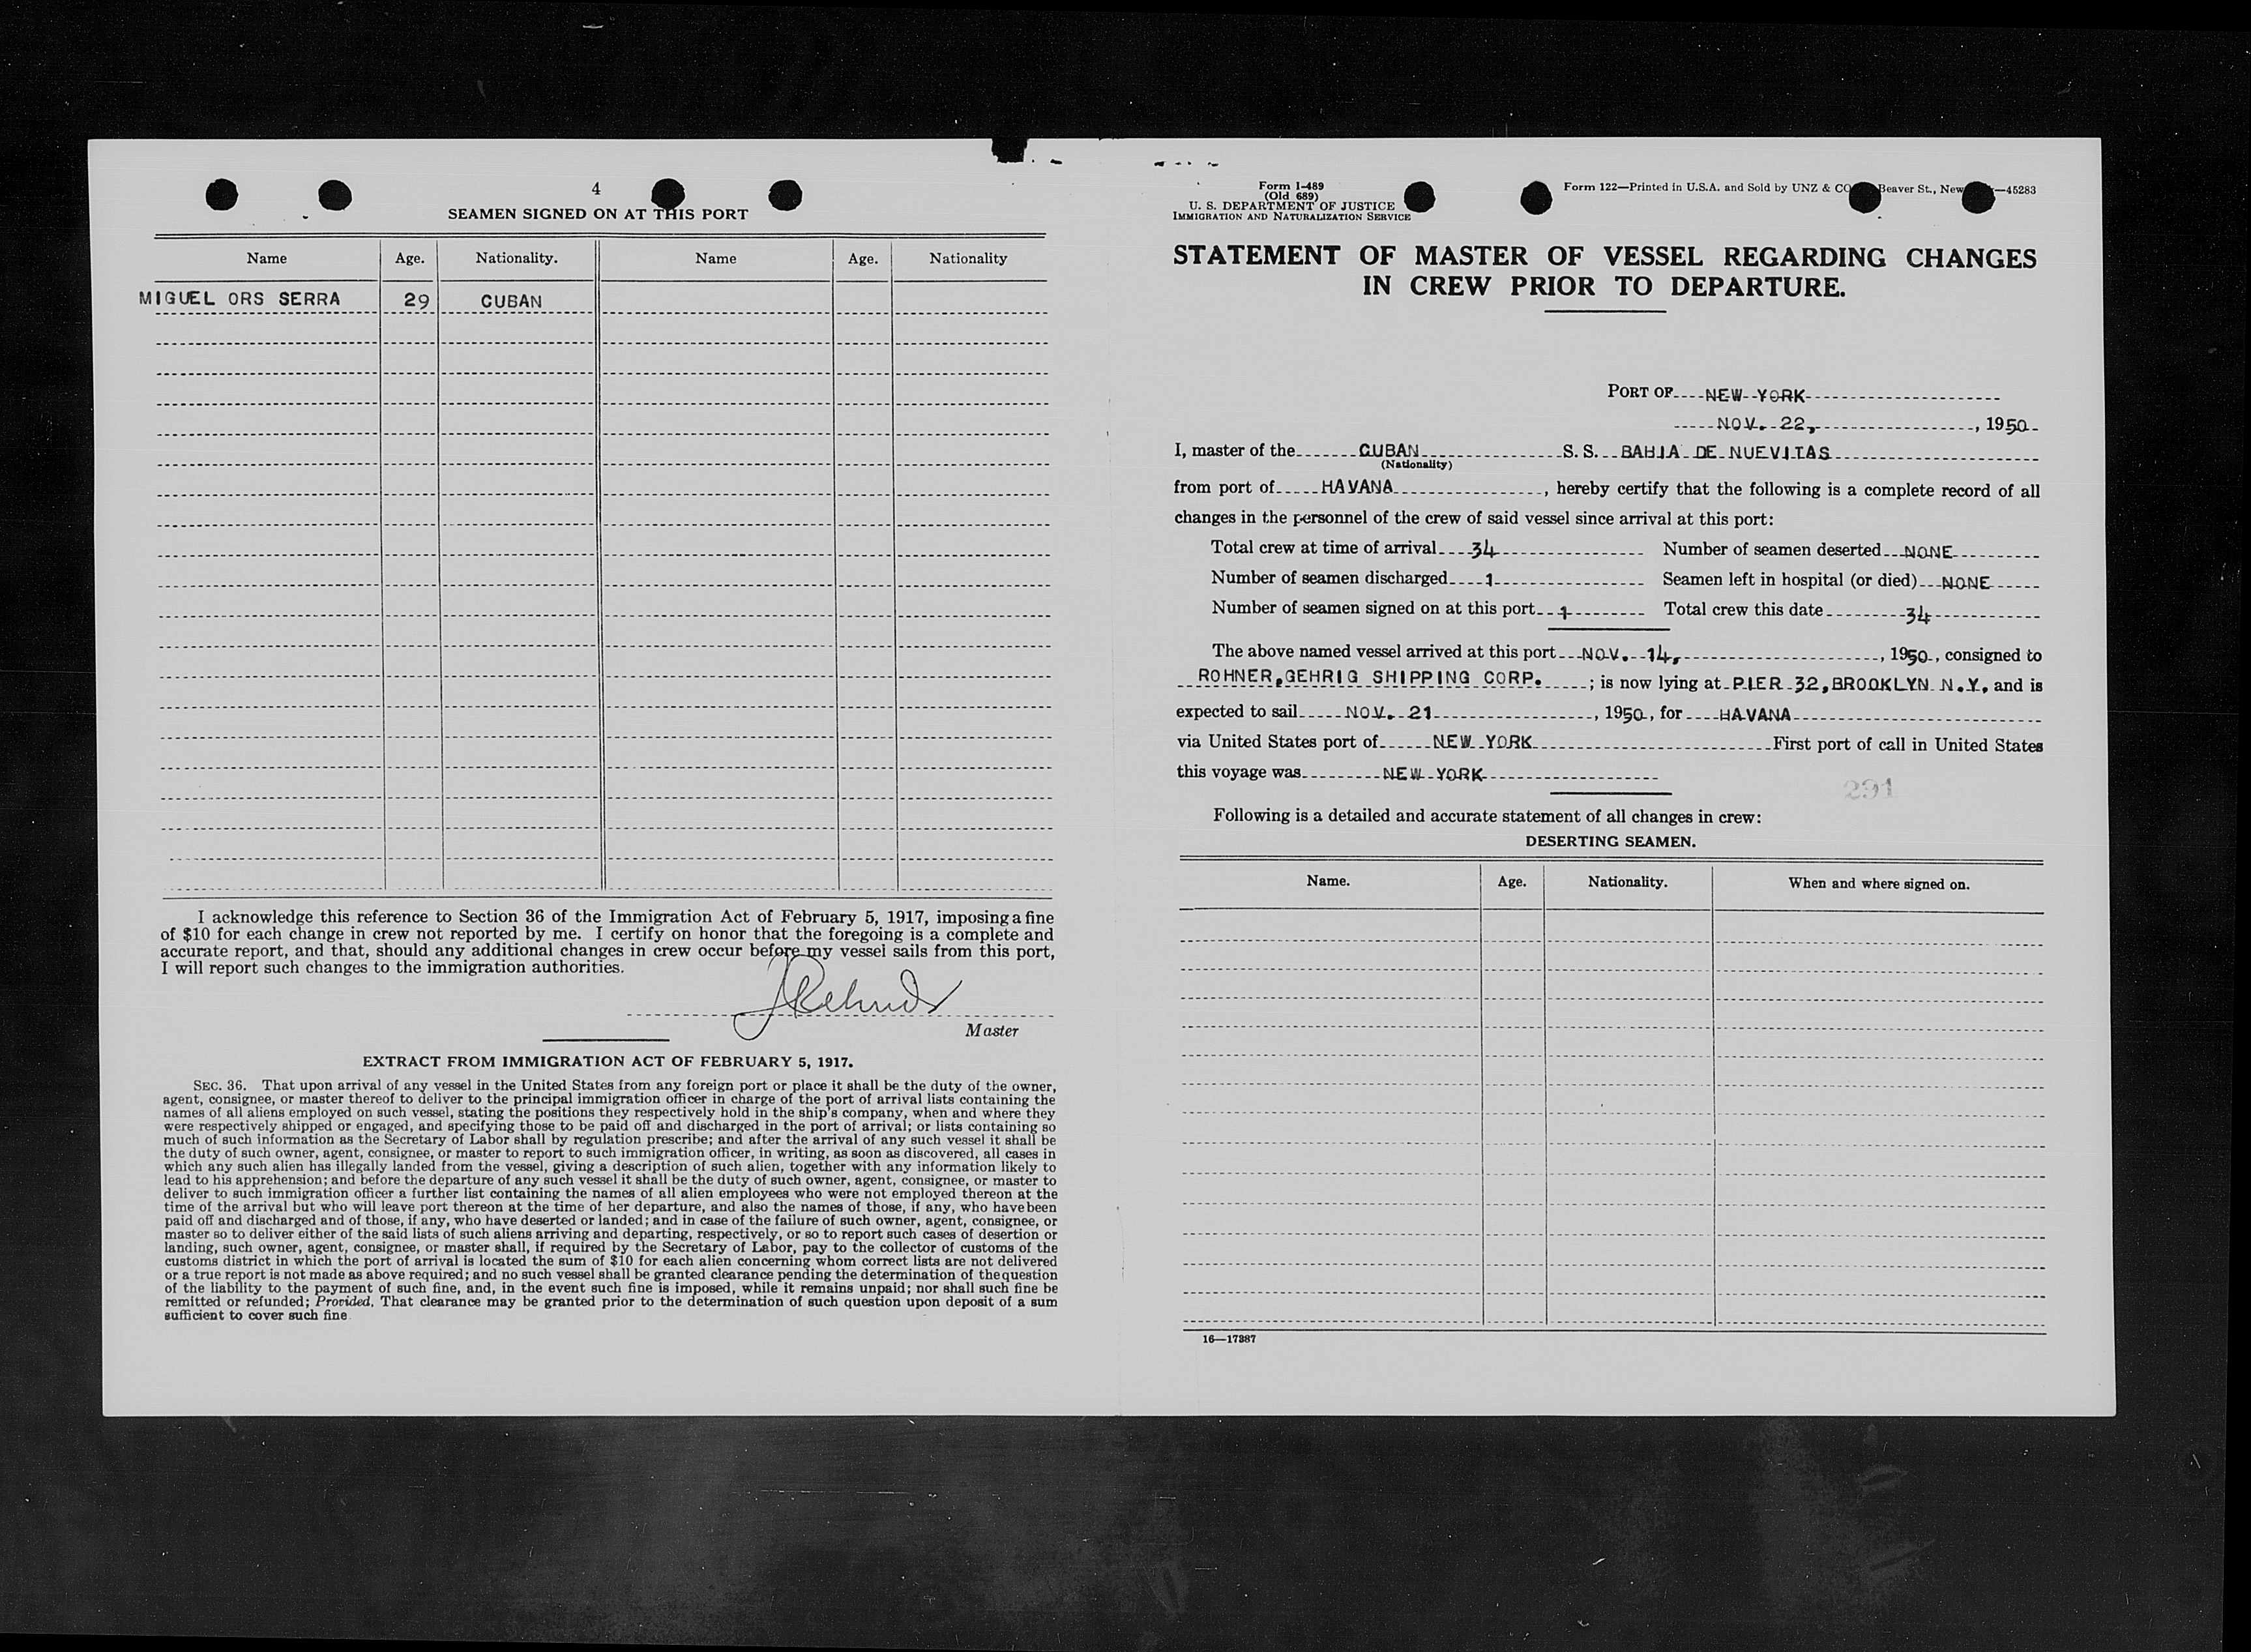 4
SEAMEN SIGNED ON AT THIS PORT
Name Age. Nationality. Name Age. Nationality
MIGUEL ORS SERRA 29 CUBAN
I acknowledge this reference to Section 36 of the Immigration Act of February 5, 1917, imposing a fine
of $10 for each change in crew not reported by me. I certify on honor that the foregoing is a complete and
accurate report, and that, should any additional changes in crew occur before my vessel sails from this port,
I will report such changes to the immigration authorities.
Master
EXTRACT FROM IMMIGRATION ACT OF FEBRUARY 5, 1917.
SEC. 36. That upon arrival of any vessel in the United States from any foreign port or place it shall be the duty of the owner,
agent, consignee, or master thereof to deliver to the principal immigration officer in charge of the port of arrival lists containing the
names of all aliens employed on such vessel, stating the positions they respectively hold in the ship's company, when and where they
were respectively shipped or engaged, and specifying those to be paid off and discharged in the port of arrival; or lists containing so
much of such information as the Secretary of Labor shall by regulation prescribe; and after the arrival of any such vessel it shall be
the duty of such owner, agent, consignee, or master to report to such immigration officer, in writing, as soon as discovered, all cases in
which any such alien has illegally landed from the vessel, giving a description of such alien, together with any information likely to
lead to his apprehension; and before the departure of any such vessel it shall be the duty of such owner, agent, consignee, or master to
deliver to such immigration officer a further list containing the names of all alien employees who were not employed thereon at the
time of the arrival but who will leave port thereon at the time of her departure, and also the names of those, if any, who have been
paid off and discharged and of those, if any, who have deserted or landed; and in case of the failure of such owner, agent, consignee, or
master so to deliver either of the said lists of such aliens arriving and departing, respectively, or so to report such cases of desertion or
landing, such owner, agent, consignee, or master shall, if required by the Secretary of Labor, pay to the collector of customs of the
customs district in which the port of arrival is located the sum of $10 for each alien concerning whom correct lists are not delivered
or a true report is not made as above required; and no such vessel shall be granted clearance pending the determination of the question
of the liability to the payment of such fine, and, in the event such fine is imposed, while it remains unpaid; nor shall such fine be
remitted or refunded; Provided, That clearance may be granted prior to the determination of such question upon deposit of a sum
sufficient to cover such fine.
Form I-489
(Old 689)
U. S. DEPARTMENT OF JUSTICE
IMMIGRATION AND NATURALIZATION SERVICE
Form 122—Printed in U.S.A. and Sold by UNZ & CO Beaver St., New —45283
STATEMENT OF MASTER OF VESSEL REGARDING CHANGES
IN CREW PRIOR TO DEPARTURE.
PORT OF NEW YORK
NOV. 22, , 1950
I, master of the CUBAN S. S. BAHIA DE NUEVITAS
(Nationality)
from port of HAVANA , hereby certify that the following is a complete record of all
changes in the personnel of the crew of said vessel since arrival at this port:
Total crew at time of arrival 34 Number of seamen deserted NONE
Number of seamen discharged 1 Seamen left in hospital (or died) NONE
Number of seamen signed on at this port 1 Total crew this date 34
The above named vessel arrived at this port NOV. 14, , 1950, consigned to
ROHNER,GEHRIG SHIPPING CORP. ; is now lying at PIER 32,BROOKLYN N.Y. and is
expected to sail NOV. 21 , 1950, for HAVANA
via United States port of NEW YORK First port of call in United States
this voyage was NEW YORK
291
Following is a detailed and accurate statement of all changes in crew:
DESERTING SEAMEN.
Name. Age. Nationality. When and where signed on.
16—17387